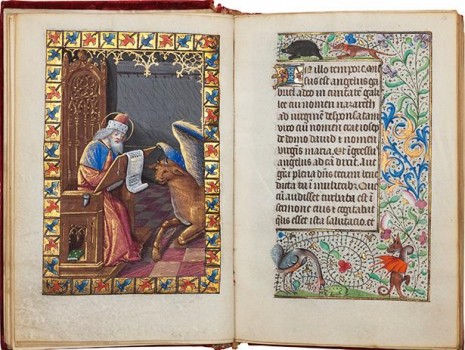 In illo tempore. Mis
sus est angelus ga
briel a deo in ciuitatē gali
lee cui nomen nazareth
ad uirginem desponsatam
uiro cui nomen erat ioseph
de domo dauid et nomen
uirginis maria. Et ingressus
angelus ad eā dixit. Aue
gratia plena dñs tecum bene
dicta tu in mulieribus. Que
cū audisset turbata est in
sermone eius et cogitabat
qualis esset ista salutatio. et